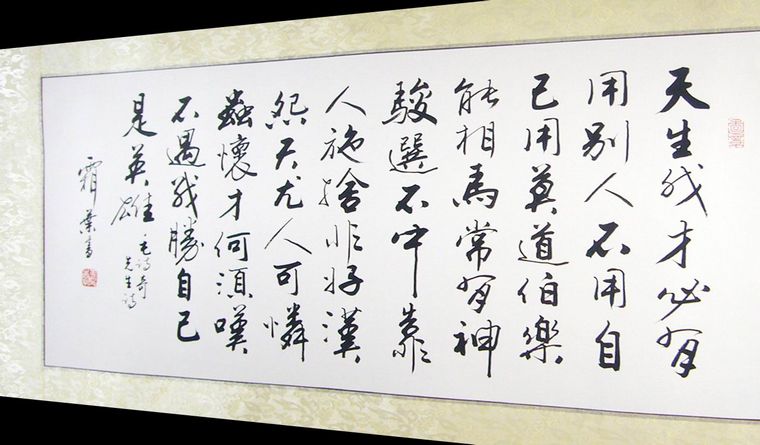 天生我才必有
用别人不用自
己用莫道伯樂
能相馬常有神
駿選不中靠
人施捨非好漢
怨天尤人可憐
蟲懷才何須嘆
不遇战勝自己
是英雄
毛诗奇
先生诗
霜葉書